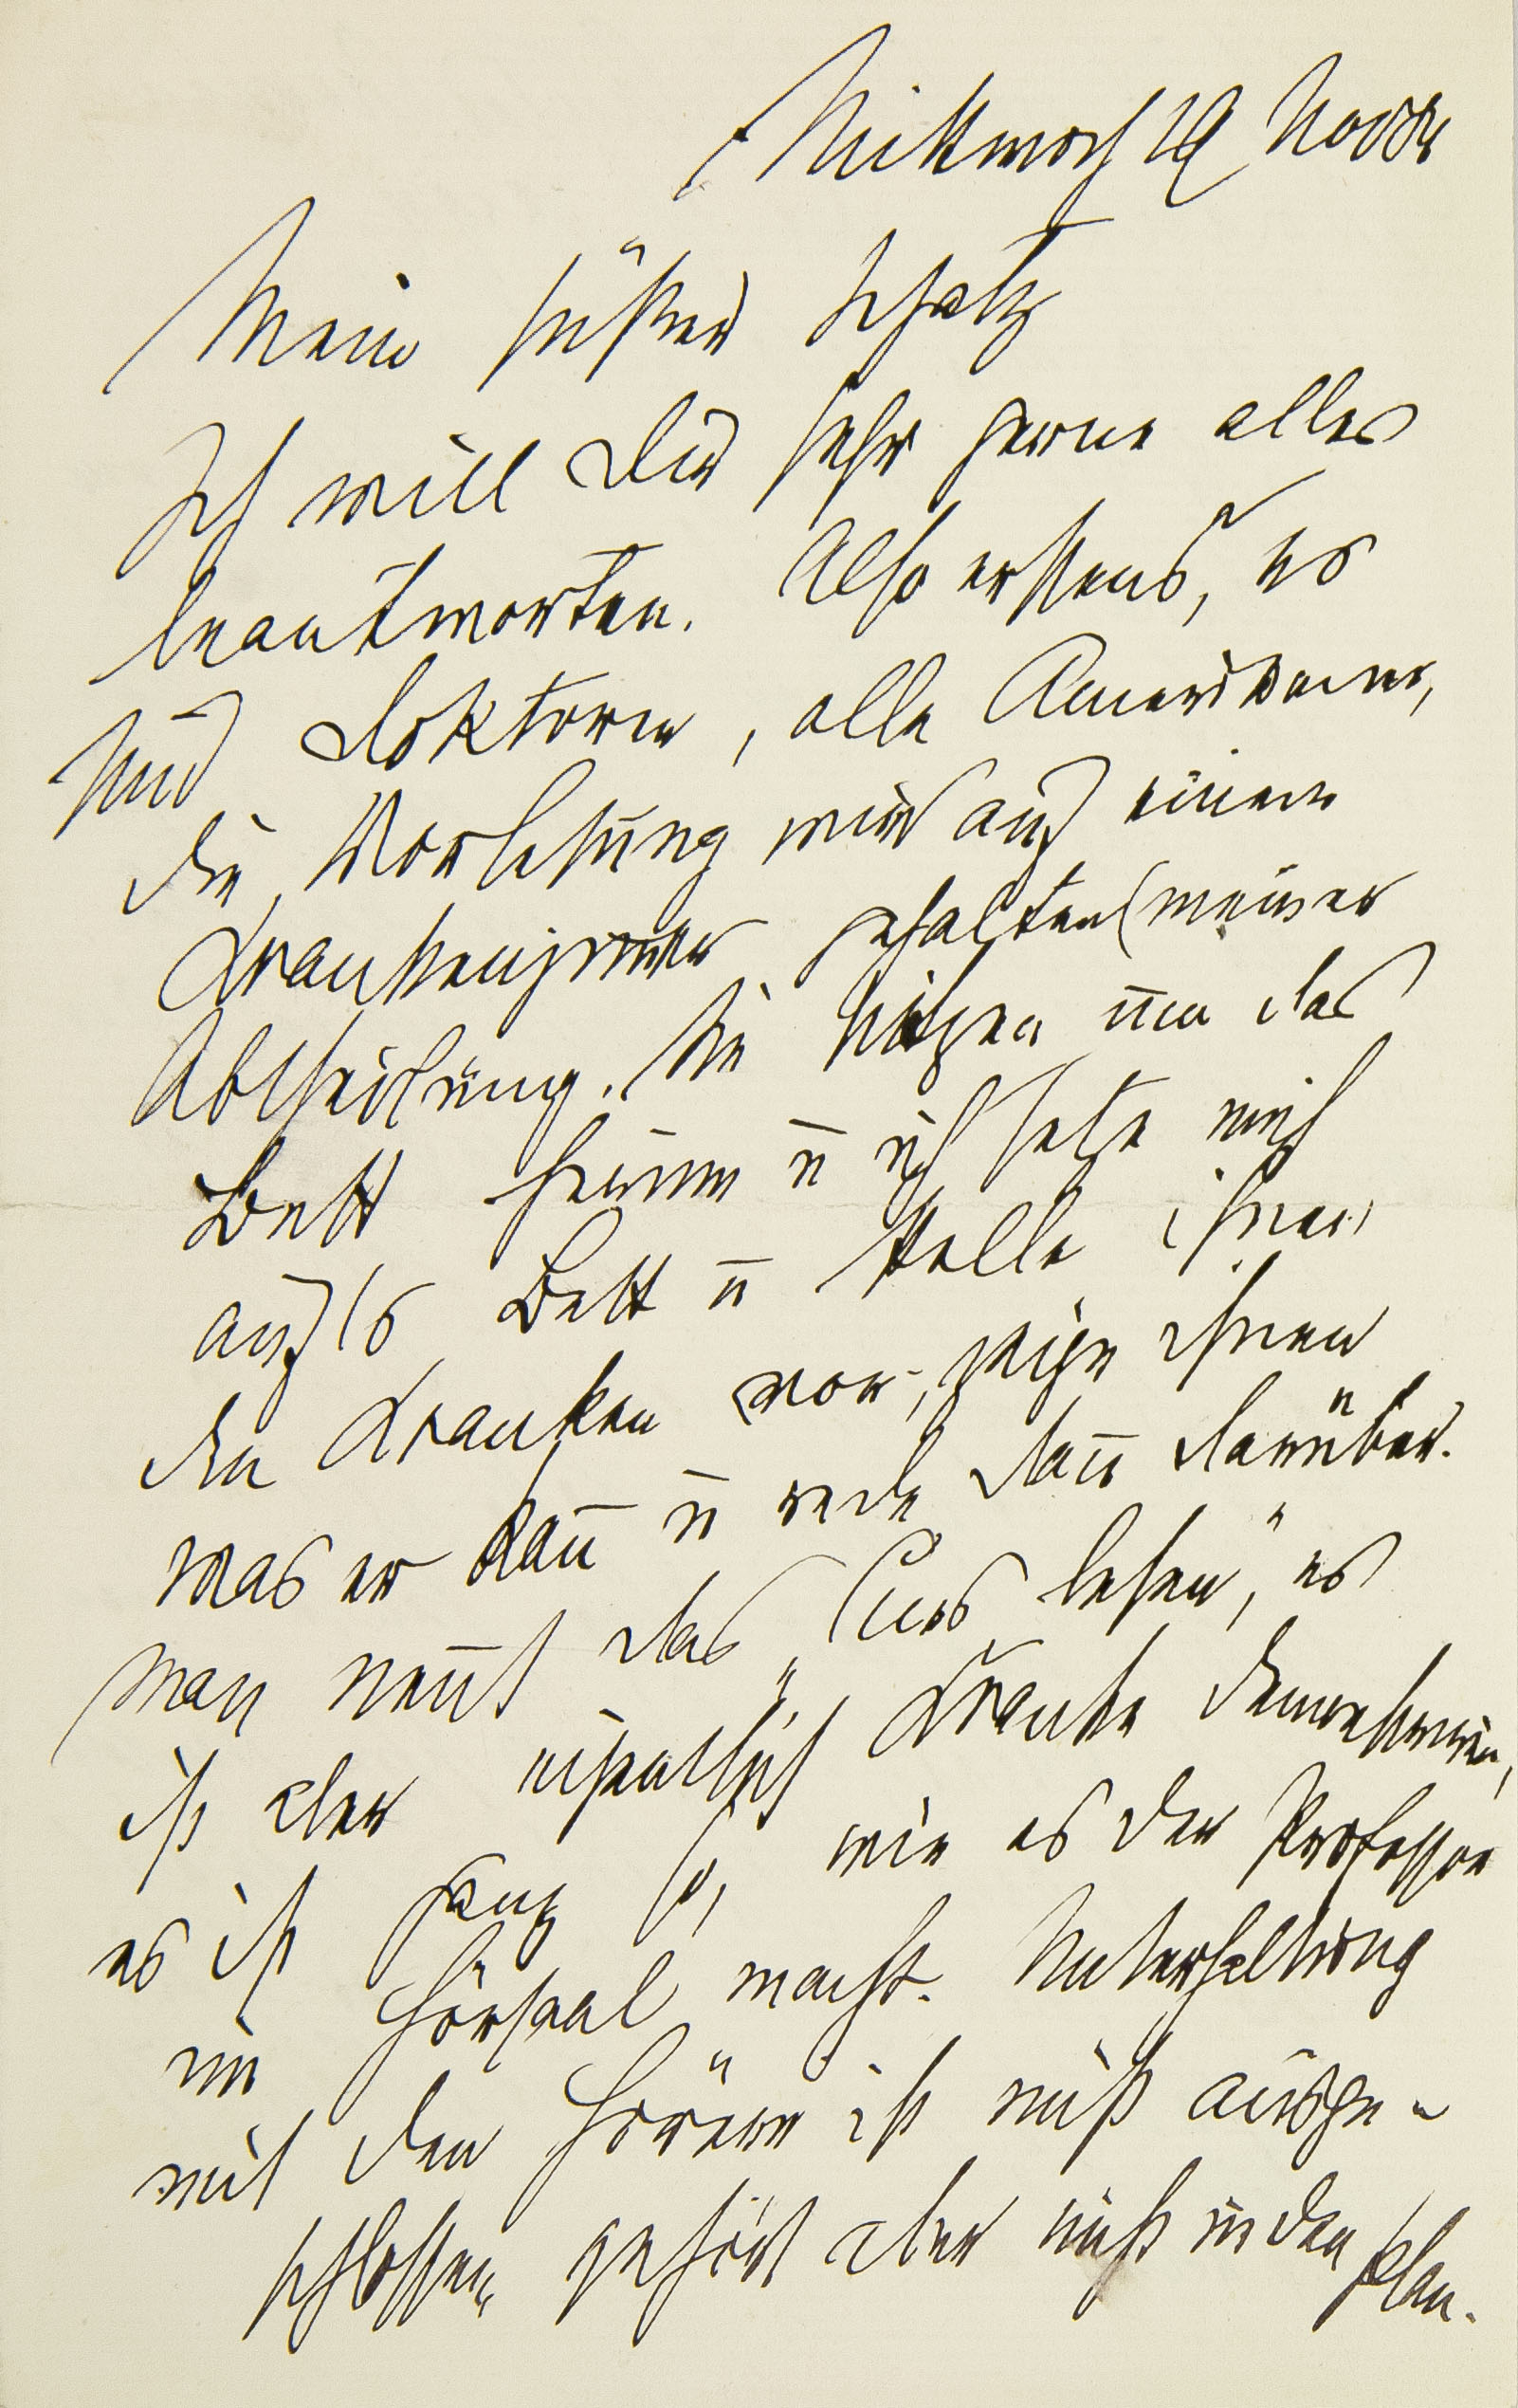 Mittwoch 19 Novbr
Mein süßer Schatz
Ich will Dir sehr gerne alles
beantworten. Also erstens, es
sind Doktoren, alle Amerikaner,
die Vorlesung wird auf einem
Krankenzimmer gehalten (meiner
Abtheilung. Sie sitzen um das
Bett herum u ich setze mich
auf's Bett u stelle ihnen
den Kranken vor, zeige ihnen
was er hat u rede dann darüber.
Man nennt das „Curs lesen", es
ist aber eigentlich Kranke demonstriren,
es ist ganz so, wie es der Professor
im Hörsaal macht. Unterhaltung
mit den Hörern ist nicht ausge-
schlossen gehört aber nicht in den Plan.